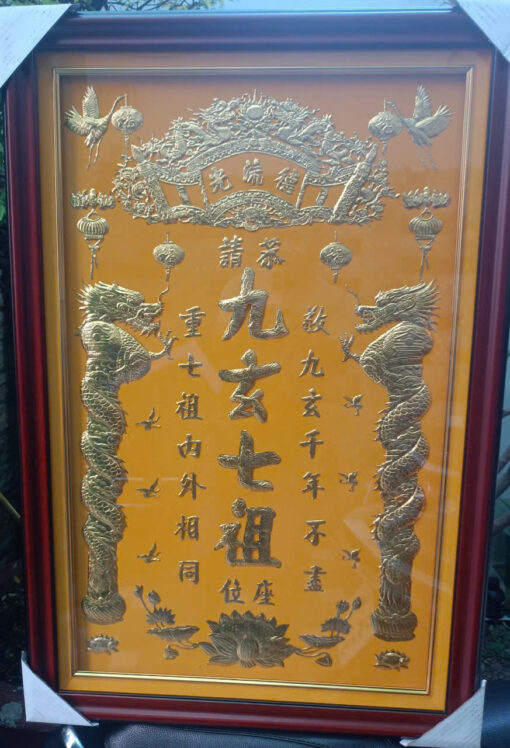 德流光
恭請
敬九玄千年不盡
九玄七祖
座位
重七祖内外相同